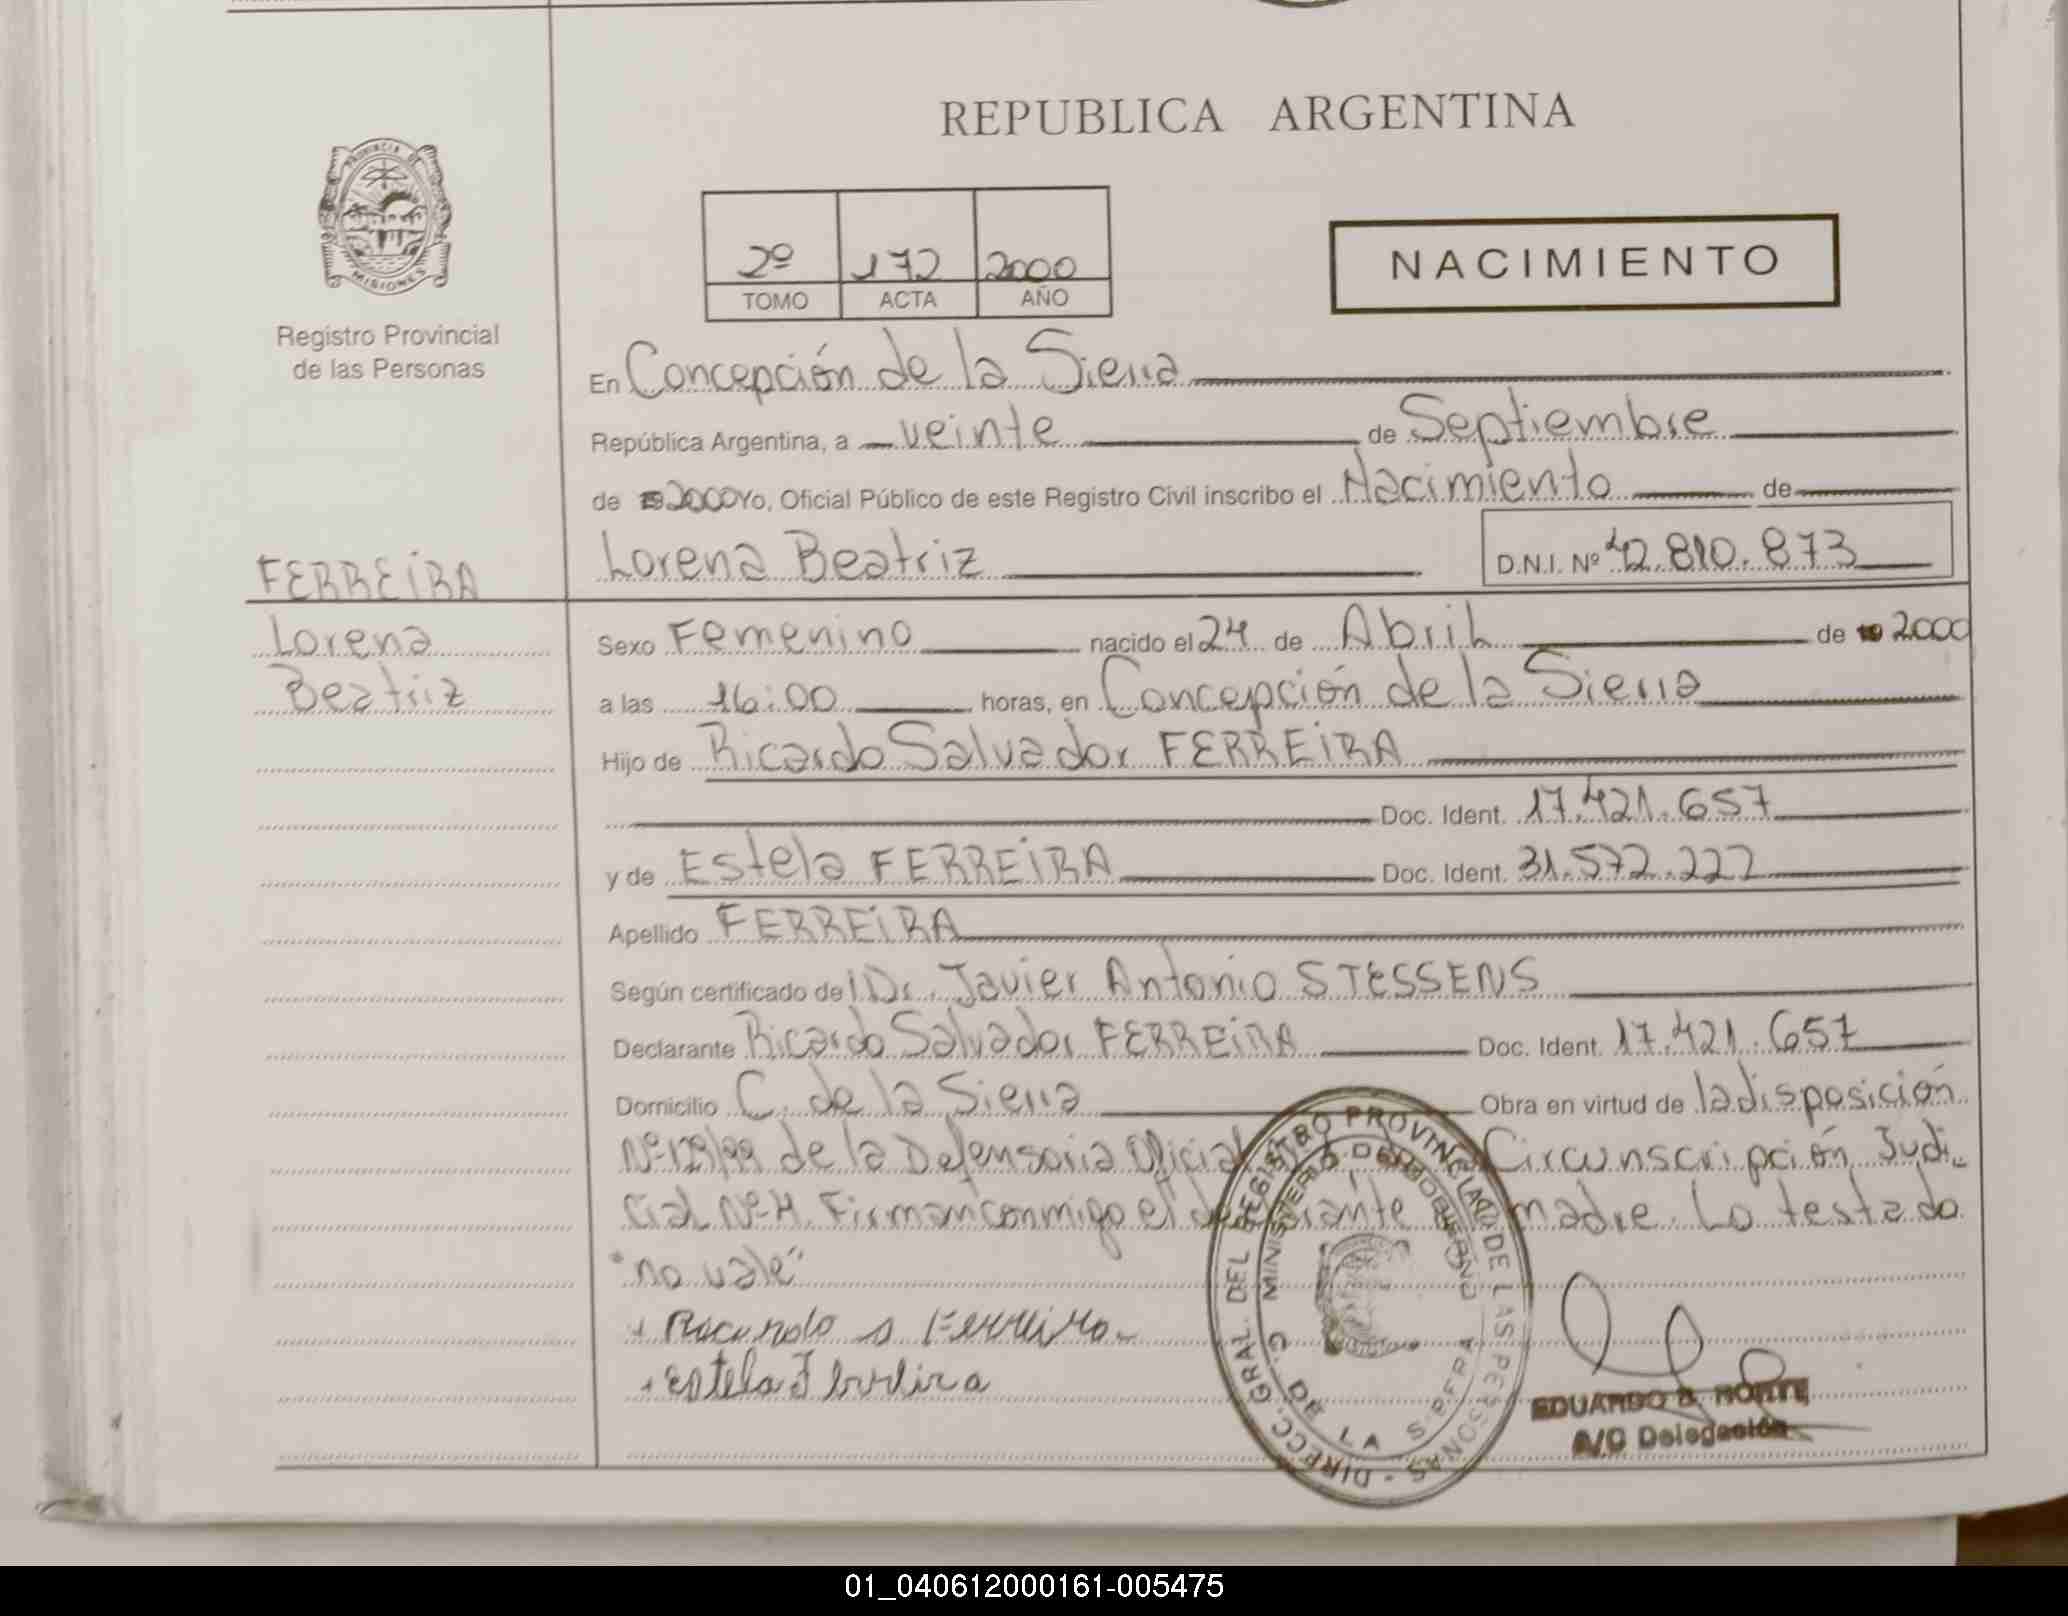 REPUBLICA ARGENTINA
PROVINCIA DE
MISIONES
Registro Provincial
de las Personas
2º 172 2000
TOMO ACTA AÑO
NACIMIENTO
En Concepción de la Sierra
República Argentina, a veinte de Septiembre
de 2000 Yo, Oficial Público de este Registro Civil inscribo el Nacimiento de
Lorena Beatriz D.N.I. Nº 42.810.873
FERREIRA
Lorena
Beatriz
Sexo Femenino nacido el 24 de Abril de 19 2000
a las 16:00 horas, en Concepción de la Sierra
Hijo de Ricardo Salvador FERREIRA
Doc. Ident. 17.421.657
y de Estela FERREIRA Doc. Ident. 31.572.222
Apellido FERREIRA
Según certificado del Dr. Javier Antonio STESSENS
Declarante Ricardo Salvador FERREIRA Doc. Ident. 17.421.657
Domicilio C. de la Sierra Obra en virtud de la disposición
Nº 129/99 de la Defensoria Oficial Circunscripción Judi-
cial Nº 4. Firman conmigo el declarante madre. Lo testado
"no vale"
Ricardo S Ferreira
Estela Ferreira
DIRECC. GRAL. DEL REGISTRO PROVINCIAL DE LAS PERSONAS
MINISTERIO DE GOBIERNO
C. DE LA SIERRA
EDUARDO B. NORTE
A/C Delegación
01_040612000161-005475